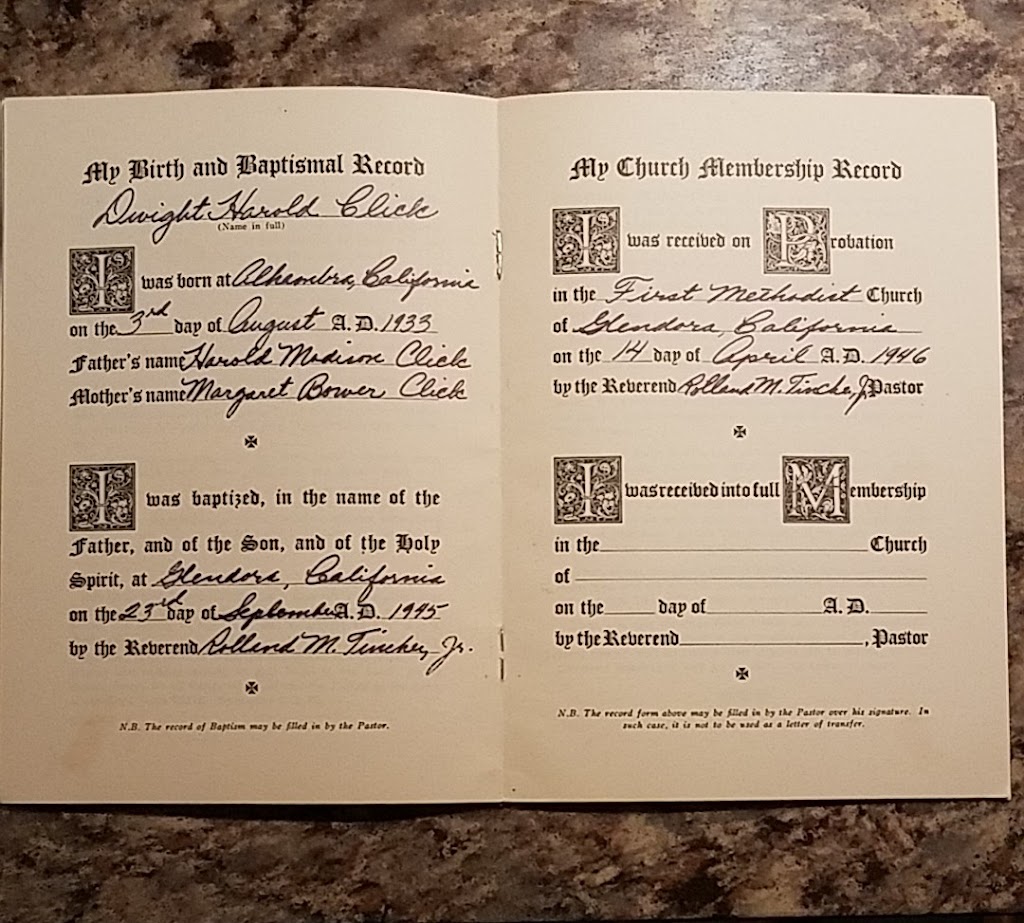 My Birth and Baptismal Record
Dwight Harold Click
(Name in full)
I was born at Alhambra, California
on the 3rd day of August A.D. 1933
Father's name Harold Madison Click
Mother's name Margaret Bower Click
I was baptized, in the name of the
Father, and of the Son, and of the Holy
Spirit, at Glendora, California
on the 23rd day of September A.D. 1945
by the Reverend Rolland M. Tincher, Jr.
N.B. The record of Baptism may be filled in by the Pastor.
My Church Membership Record
I was received on Probation
in the First Methodist Church
of Glendora, California
on the 14 day of April A.D. 1946
by the Reverend Rolland M. Tincher, Jr. Pastor
I was received into full Membership
in the Church
of
on the day of A.D.
by the Reverend , Pastor
N.B. The record form above may be filled in by the Pastor over his signature. In
such case, it is not to be used as a letter of transfer.